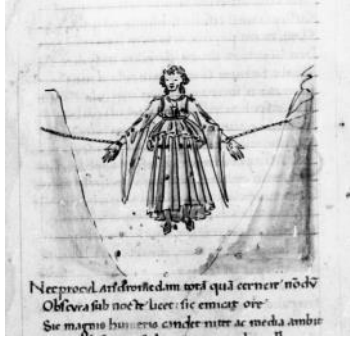 Nec procul Andromedam totā quā cernere nōdū
Obscura sub nocte licet: sic emicat ore
Sic magnis humeris candet nitet ac media ambit